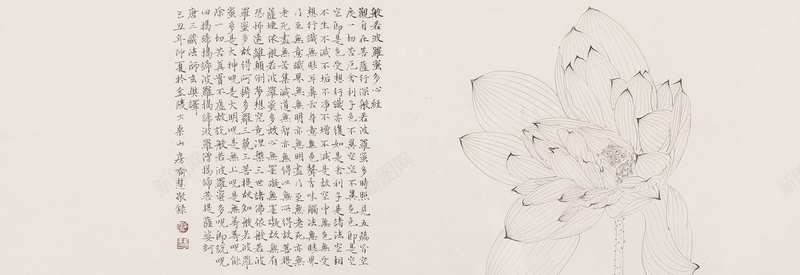 般若波羅蜜多心經
觀自在菩薩行深般若波羅蜜多時照見五蘊皆空
度一切苦厄舍利子色不異空空不異色色即是空
空即是色受想行識亦復如是舍利子是諸法空相
不生不滅不垢不淨不增不減是故空中無色無受
想行識無眼耳鼻舌身意無色聲香味觸法無眼界
乃至無意識界無無明亦無無明盡乃至無老死亦無
老死盡無苦集滅道無智亦無得以無所得故菩提
薩埵依般若波羅蜜多故心無罣礙無罣礙故無有
恐怖遠離顛倒夢想究竟涅槃三世諸佛依般若波
羅蜜多故得阿耨多羅三藐三菩提故知般若波羅
蜜多是大神呪是大明呪是無上呪是無等等呪能
除一切苦真實不虛故說般若波羅蜜多呪即說呪
曰揭諦揭諦波羅揭諦波羅僧揭諦菩提薩婆訶
唐三藏法師玄奘譯
己丑年仲夏於金陵山房喻慧敬錄